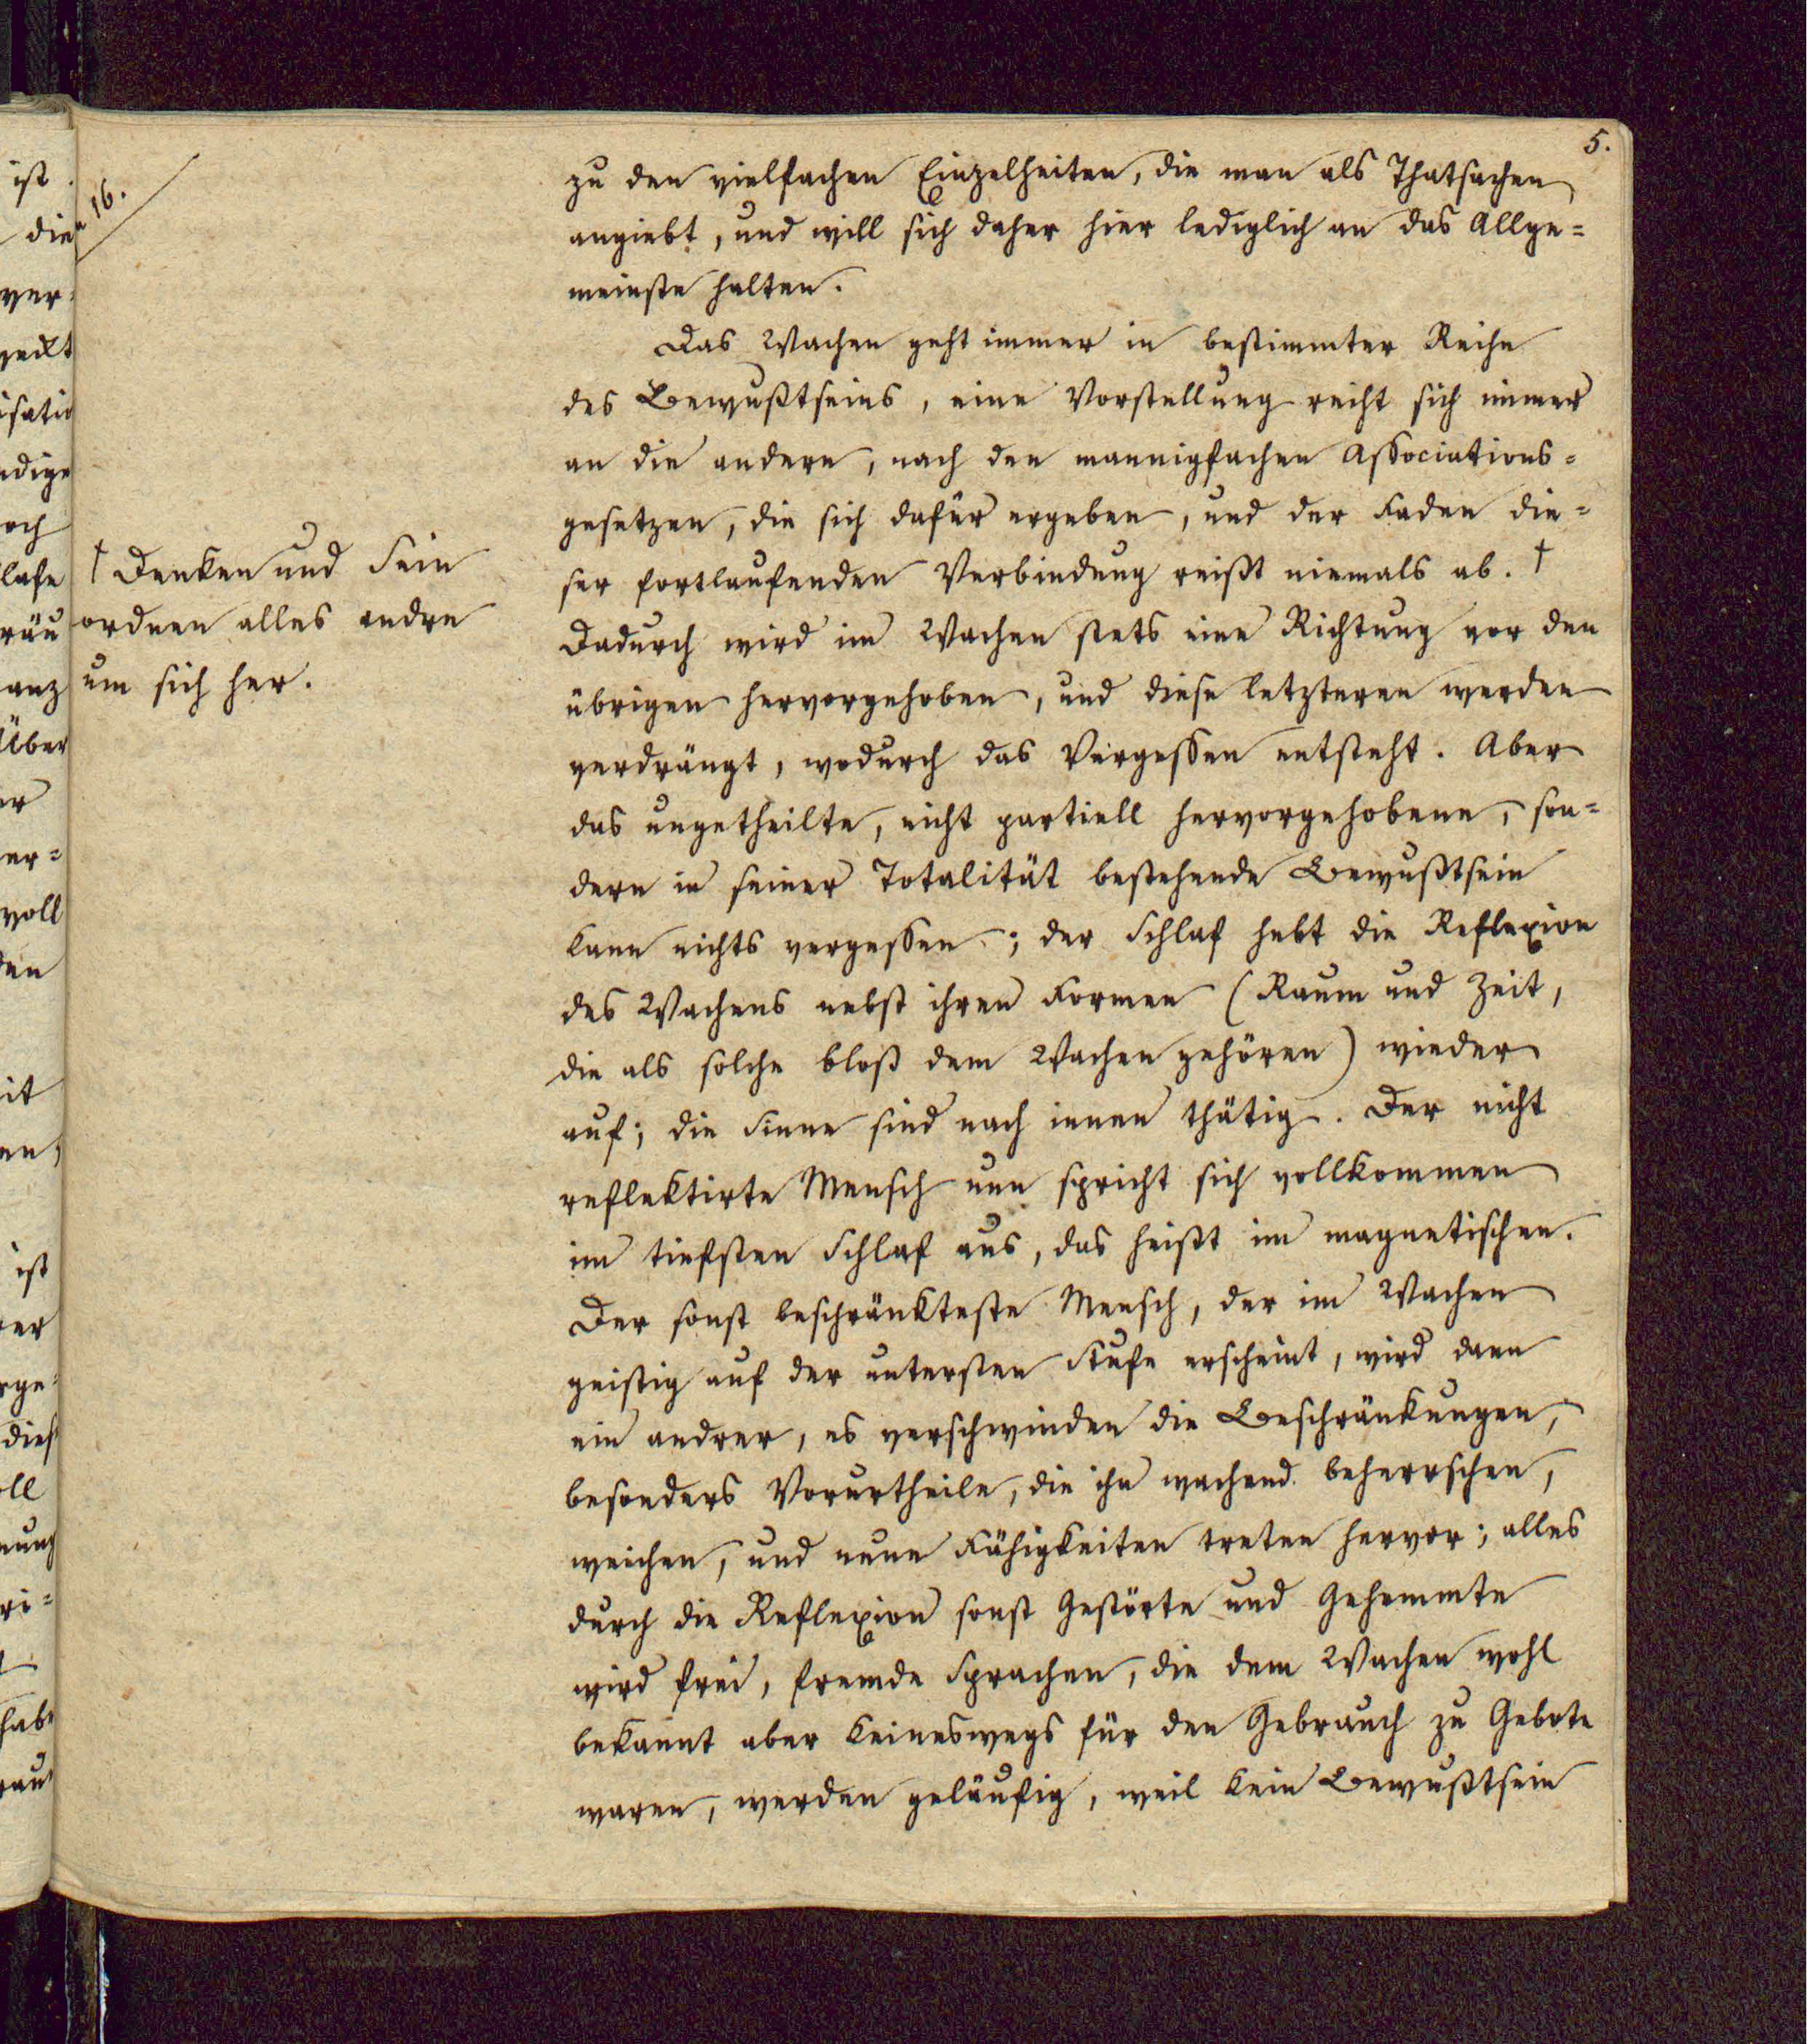 5.
zu den vielfachen Einzelheiten, die man als Thatsachen
angiebt, und will sich daher hier lediglich an das Allge=
meinste halten.
Das Wachen geht immer in bestimmter Reihe
des Bewußtseins, eine Vorstellung reiht sich immer
an die andere, nach den mannigfachen Associations=
gesetzen, die sich dafür ergeben, und der Faden die=
ser fortlaufenden Verbindung reißt niemals ab. †
Dadurch wird im Wachen stets eine Richtung vor den
übrigen hervorgehoben, und diese letzteren werden
verdrängt, wodurch das Vergessen entsteht. Aber
das ungetheilte, nicht partiell hervorgehobene, son=
dern in seiner Totalität bestehende Bewußtsein
kann nichts vergessen; der Schlaf hebt die Reflexion
des Wachens nebst ihren Formen (Raum und Zeit,
die als solche bloß dem Wachen gehören) wieder
auf; die Sinne sind nach innen thätig. Der nicht
reflektirte Mensch nun spricht sich vollkommen
im tiefsten Schlaf aus, das heißt im magnetischen.
Der sonst beschränkteste Mensch, der im Wachen
geistig auf der untersten Stufe erscheint, wird dann
ein andrer, es verschwinden die Beschränkungen,
besonders Vorurtheile, die ihn wachend beherrschen,
weichen, und neue Fähigkeiten treten hervor; alles
durch die Reflexion sonst Gestörte und Gehemmte
wird frei, fremde Sprachen, die dem Wachen wohl
bekannt aber keineswegs für den Gebrauch zu Gebote
waren, werden geläufig, weil kein Bewußtsein
16.
† Denken und Sein
ordnen alles andre
um sich her.
ist
die
ver=
isatio
ndige
och
lafe
räu
anz
Über
er
er=
voll
den
it
en,
ist
er
rge=
dies
oll
nung
ri=
habe